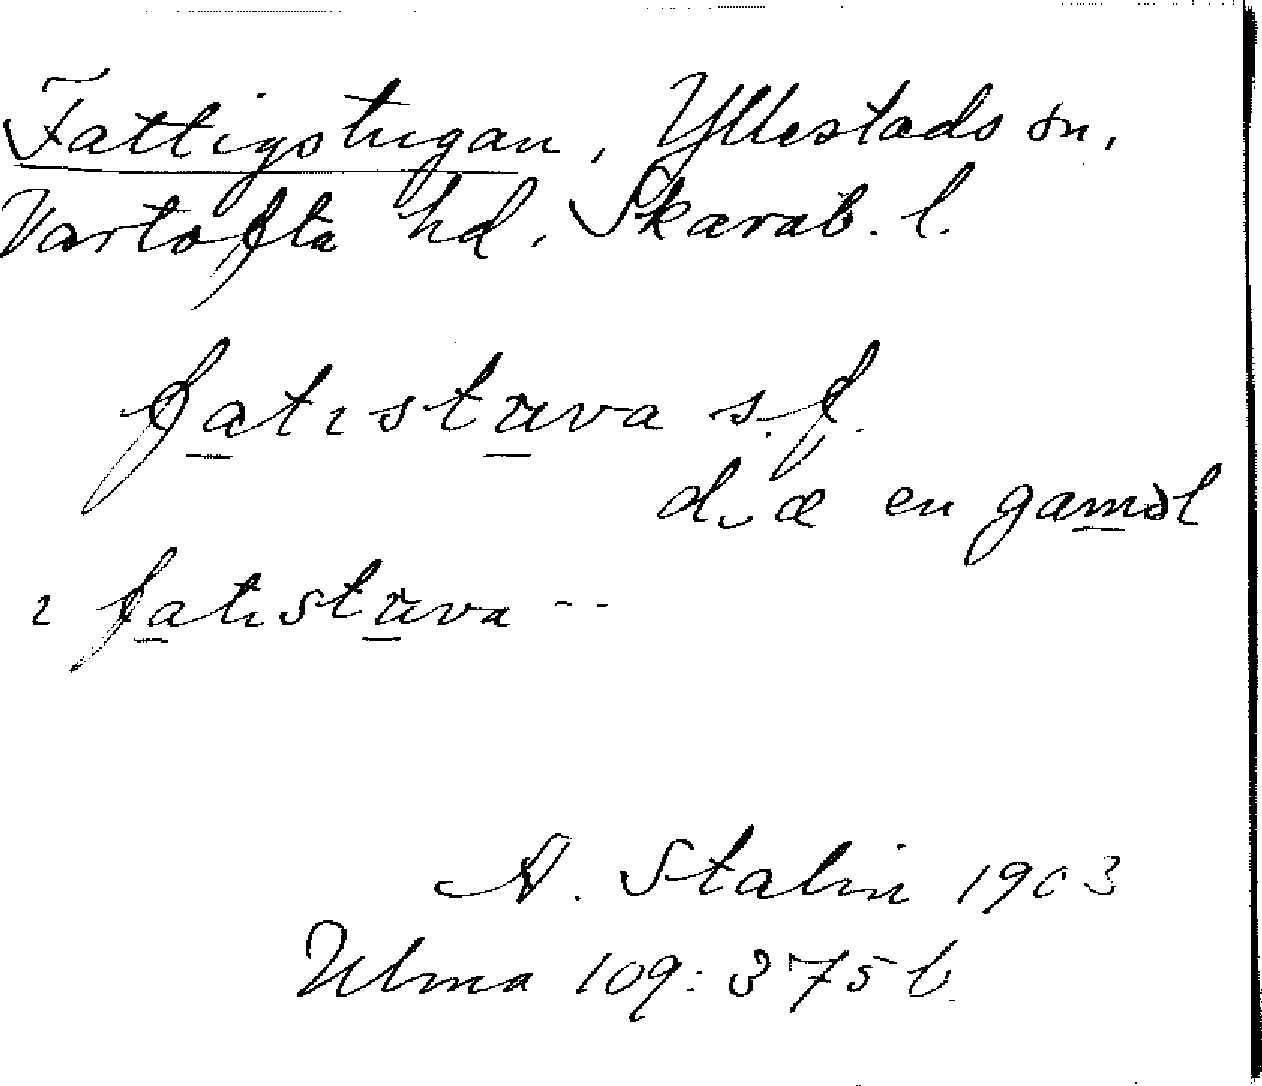 Fattigstugan, Yllestads sn,
Vartofta hd, Skarab. l.
fatıstuva s.f.
d æ en gaməl
ı fatıstuva --
A. Stalin 1903
Ulma 109: 375 b.